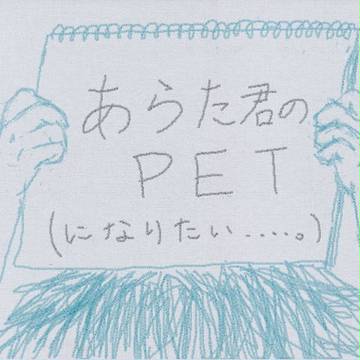 あらた君の
PET
(になりたい.....。)